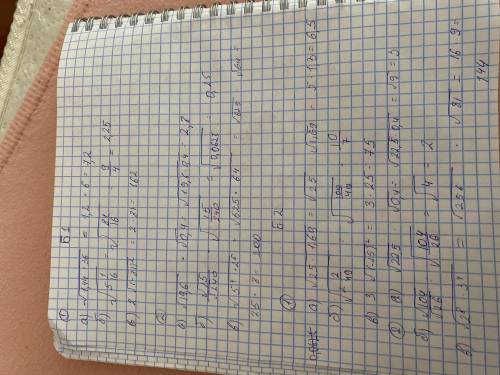 ①
Б 1
а) √1,44 · 25 = 1,2 · 6 = 7,2
б) √5 1/16 = √81/16 = 9/4 = 2,25
в) 2√(-21)² = 2 · 21 = 162
②
а) √19,6 · √0,4 = √19,6 · 0,4 2,8
б) √15/√240 = √15/240 = √0,0625 = 0,25
в) √5⁴ · 2⁶ = √625 · 64 = √625 √64 =
25 · 8 = 200
Б 2
①
а) √25 · 1,69 = √25 √1,69 = 5 · 1,3 = 6,5
б) √2 2/49 √100/49 10/7
в) 3 √(-25)² = 3 · 25 = 75
② а) √22,5 √0,4 = √22,5 · 0,4 = √9 = 3
б) √104/√26 = √104/26 = √4 = 2
в) √2⁸ · 3⁴ = √256 · √81 = 16 · 9 =
144